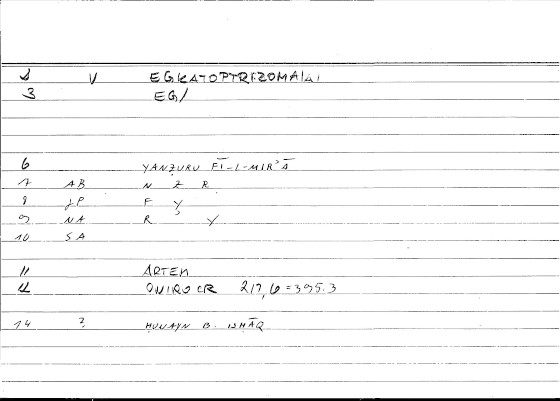 2 V EGKATOPTRIZOMAI
3 EG/
6 YANẒURU FĪ-L-MIRʾĀ
7 AB N Ẓ R
8 JP F Y
9 NA R ʾ Y
10 SA
11 ARTEM
12 ONIROCR 217,6=395.3
14 2, ḤUNAYN B. ISḤĀQ